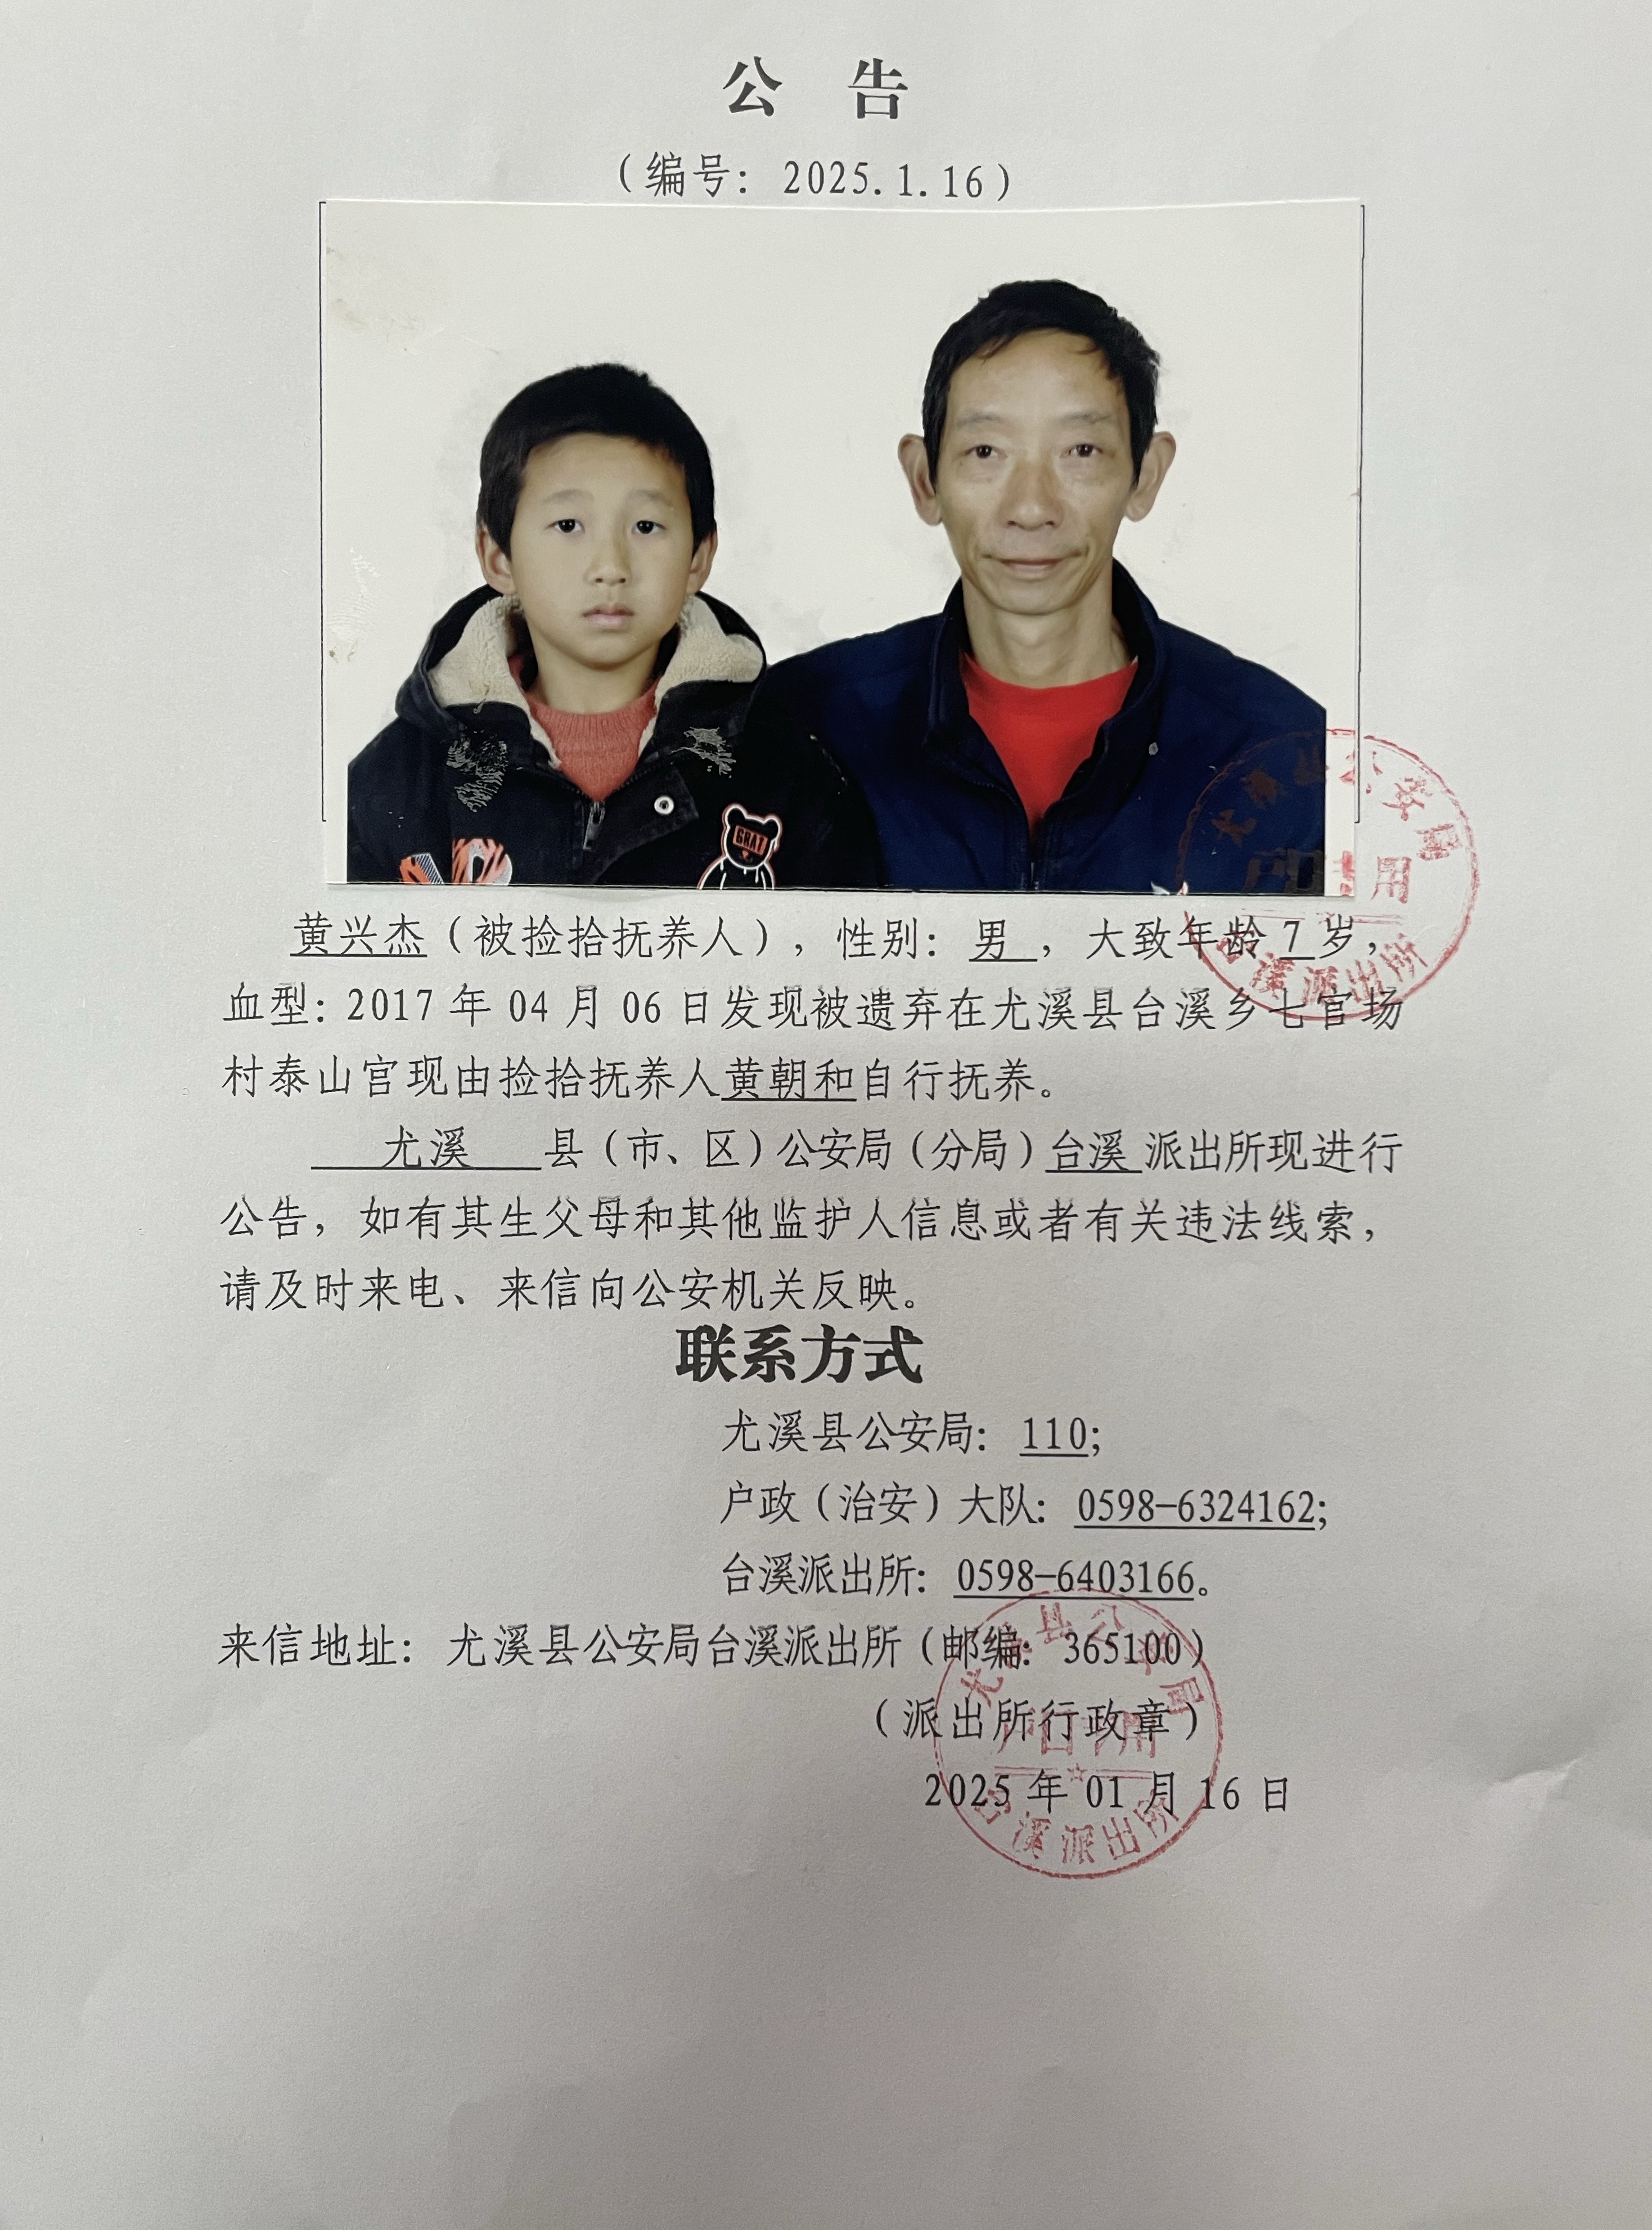 公 告
（编号：2025.1.16）
GRAT
黄兴杰（被捡拾抚养人），性别：男，大致年龄7岁，
血型：2017年04月06日发现被遗弃在尤溪县台溪乡七官场
村泰山宫现由捡拾抚养人黄朝和自行抚养。
尤溪县（市、区）公安局（分局）台溪派出所现进行
公告，如有其生父母和其他监护人信息或者有关违法线索，
请及时来电、来信向公安机关反映。
联系方式
尤溪县公安局：110；
户政（治安）大队：0598-6324162；
台溪派出所：0598-6403166。
来信地址：尤溪县公安局台溪派出所（邮编：365100）
（派出所行政章）
2025年01月16日
尤溪县公安局
户口专用
台溪派出所